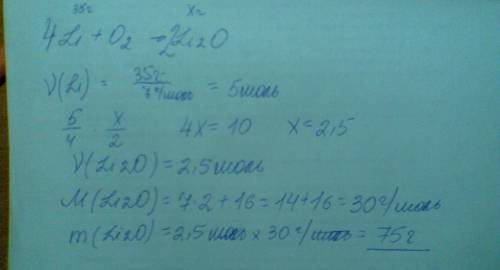 35г xг
4Li + O2 → 2Li2O
ν(Li) = 35г / 7 г/моль = 5 моль
5/4 · x/2 4x = 10 x = 2,5
ν(Li2O) = 2,5 моль
M(Li2O) = 7·2 + 16 = 14 + 16 = 30 г/моль
m(Li2O) = 2,5 моль × 30 г/моль = 75г